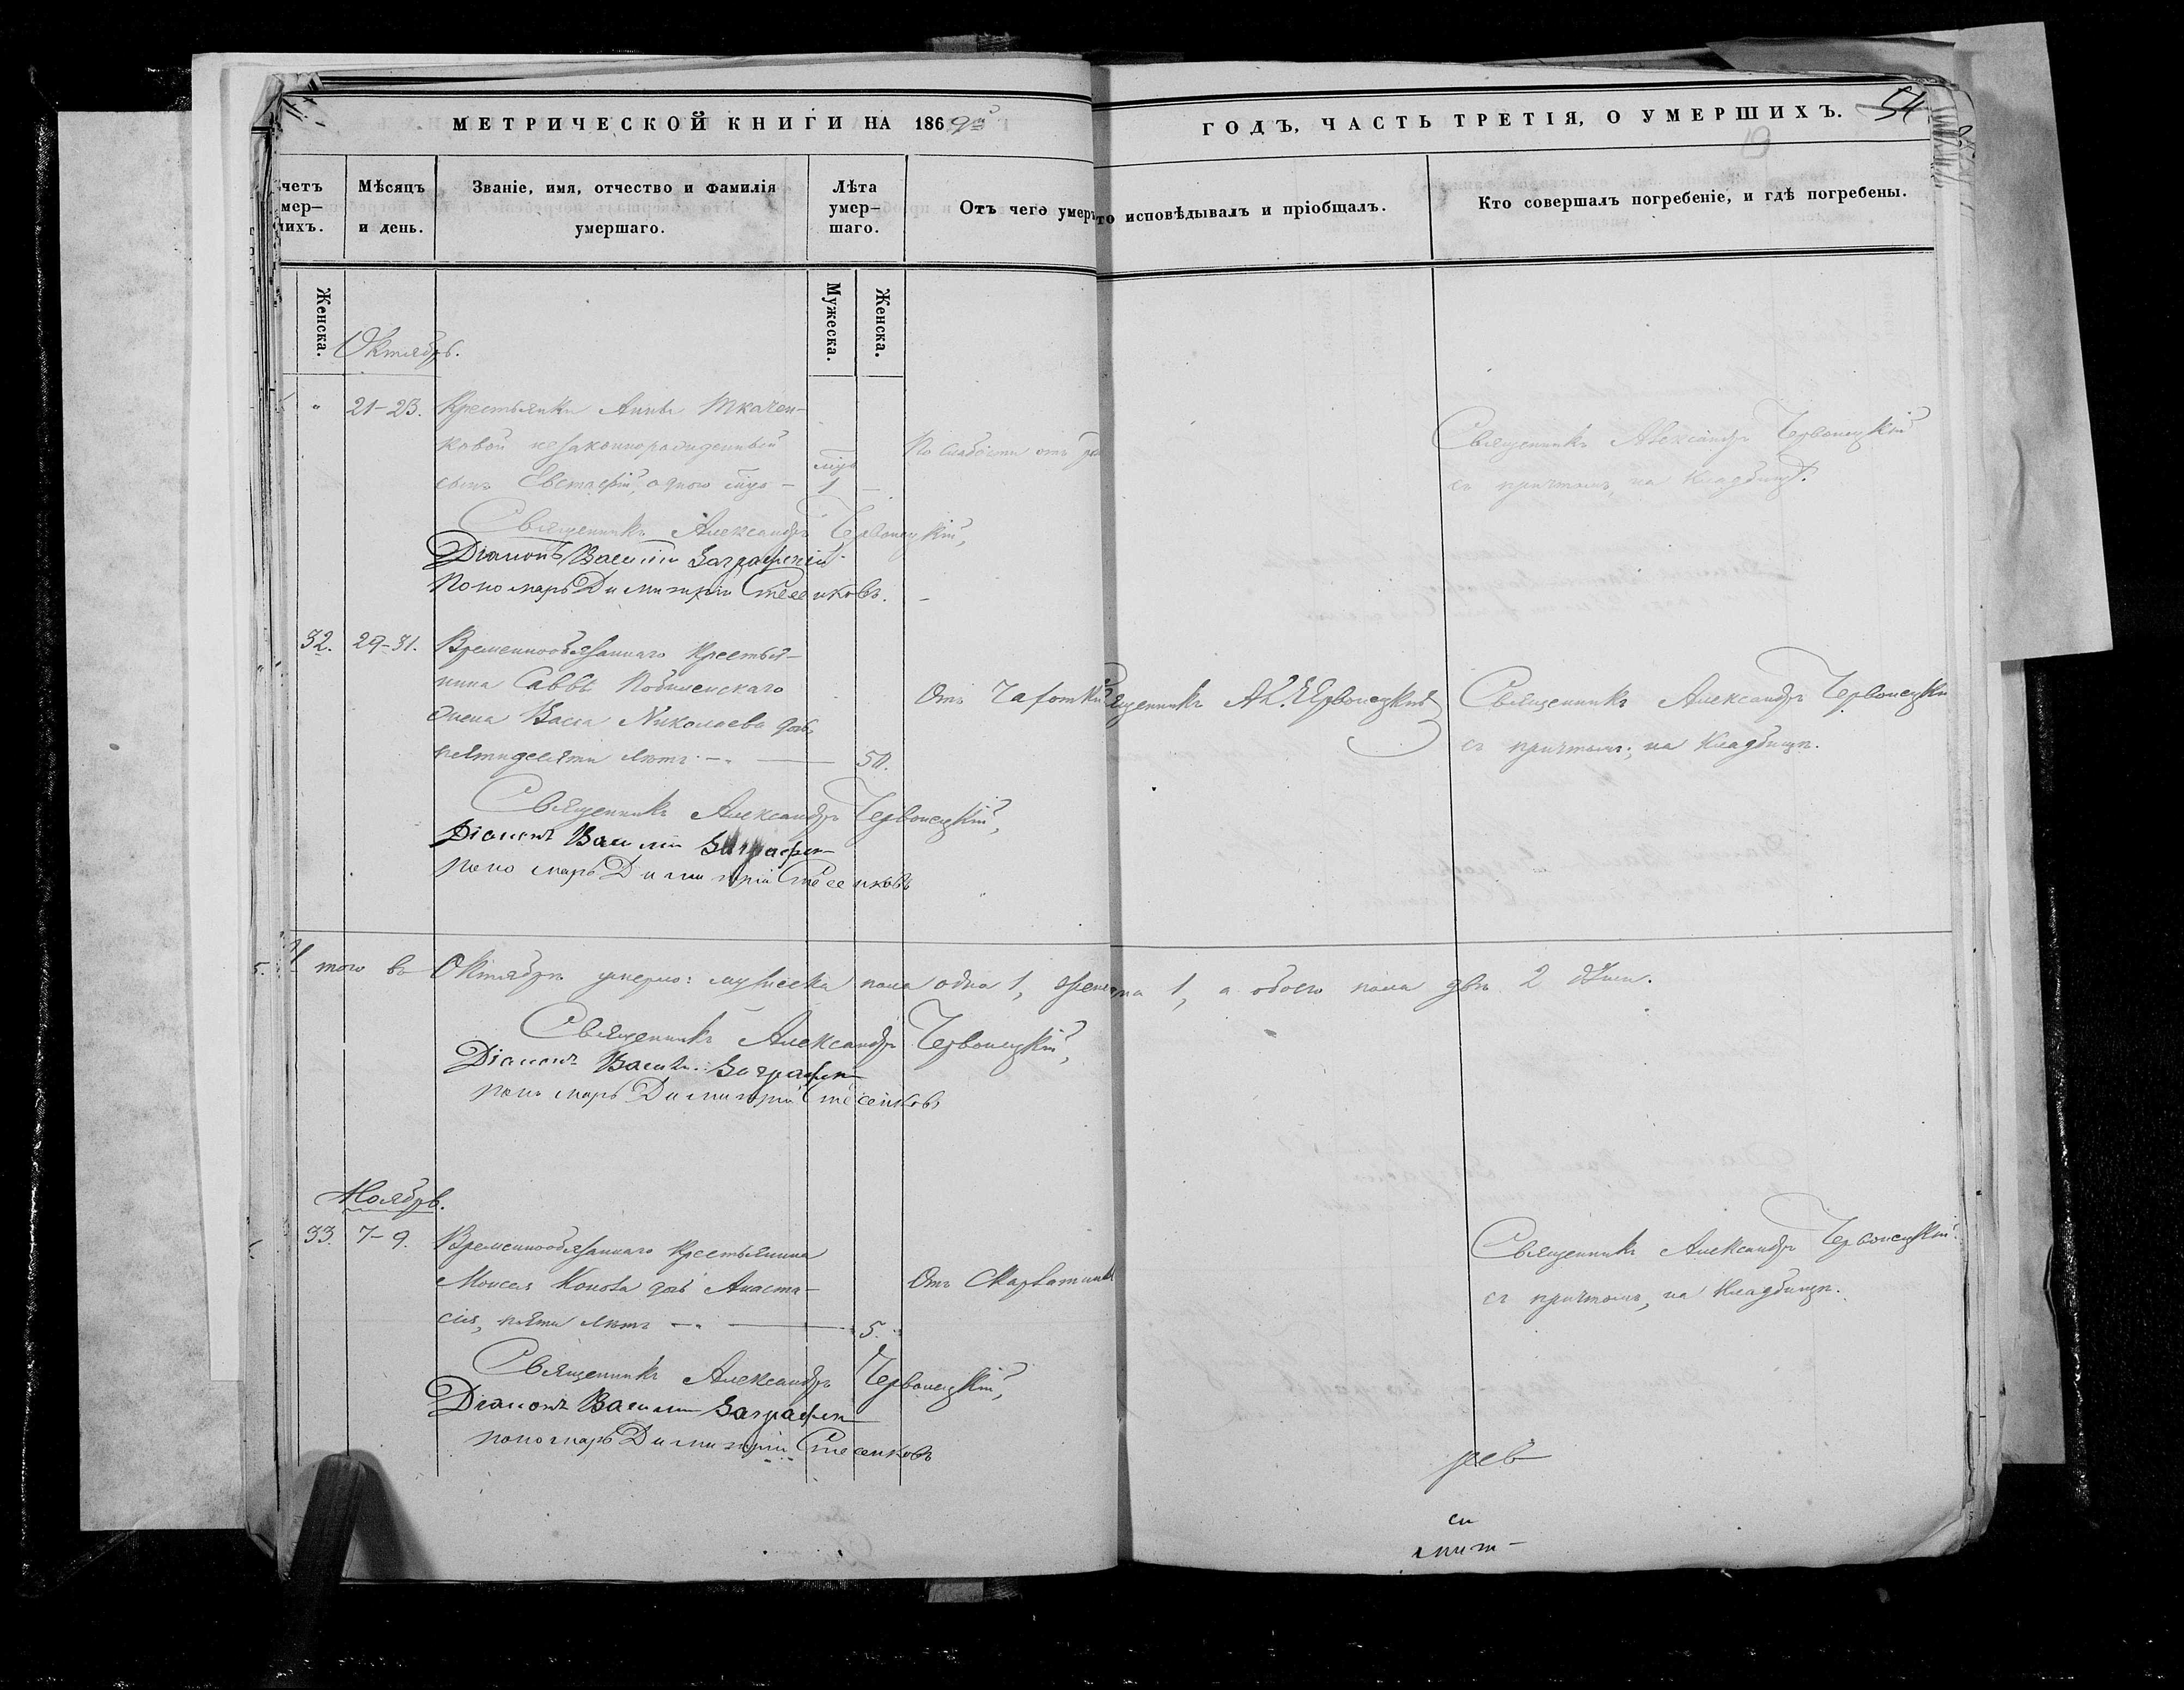 МЕТРИЧЕСКОЙ КНИГИ НА 1869й
ГОДЪ, ЧАСТЬ ТРЕТІЯ, О УМЕРШИХЪ.
54
четъ мер– ихъ.
Мѣсяцъ и день.
Званіе, имя, отчество и фамилія умершаго.
Лѣта умер– шаго.
Отъ чего умер
то исповѣдывалъ и пріобщалъ.
Кто совершалъ погребеніе, и гдѣ погребены.
Женска.
Мужеска.
Женска.
Октябрь.
21–23. Крестьянки Анны Ткачен–
ковой незаконнорожденный
сынъ Евстафій, одного – 1
По слабости отъ
Священникъ Александръ Червонецкій
съ причтомъ, на Кладбищѣ.
Священникъ Александръ Червонецкій,
Діаконъ Василій
Пономарь Димитрій
32. 29–31. Временнообязаннаго Крестья–
нина Саввы
жена Васса Николаева дочь
пятидесяти лѣтъ 50.
Отъ Чахотки
Священникъ Ал. Червонецкій
Священникъ Александръ Червонецкій
съ причтомъ, на Кладбищѣ.
Священникъ Александръ Червонецкій,
Діаконъ Василій
пономарь Димитрій
Итого въ Октябрѣ умерло: мужеска пола одна 1, женска 1, а обоего пола двѣ 2 души.
Священникъ Александръ Червонецкій,
Діаконъ Василій
пономарь Димитрій
Ноябрь.
33. 7–9. Временнообязаннаго Крестьянина
Моисея Конова дочь Анаста–
сія, пяти лѣтъ 5.
Отъ Скарлатины
Священникъ Александръ Червонецкій
съ причтомъ, на Кладбищѣ.
Священникъ Александръ Червонецкій,
Діаконъ Василій
пономарь Димитрій